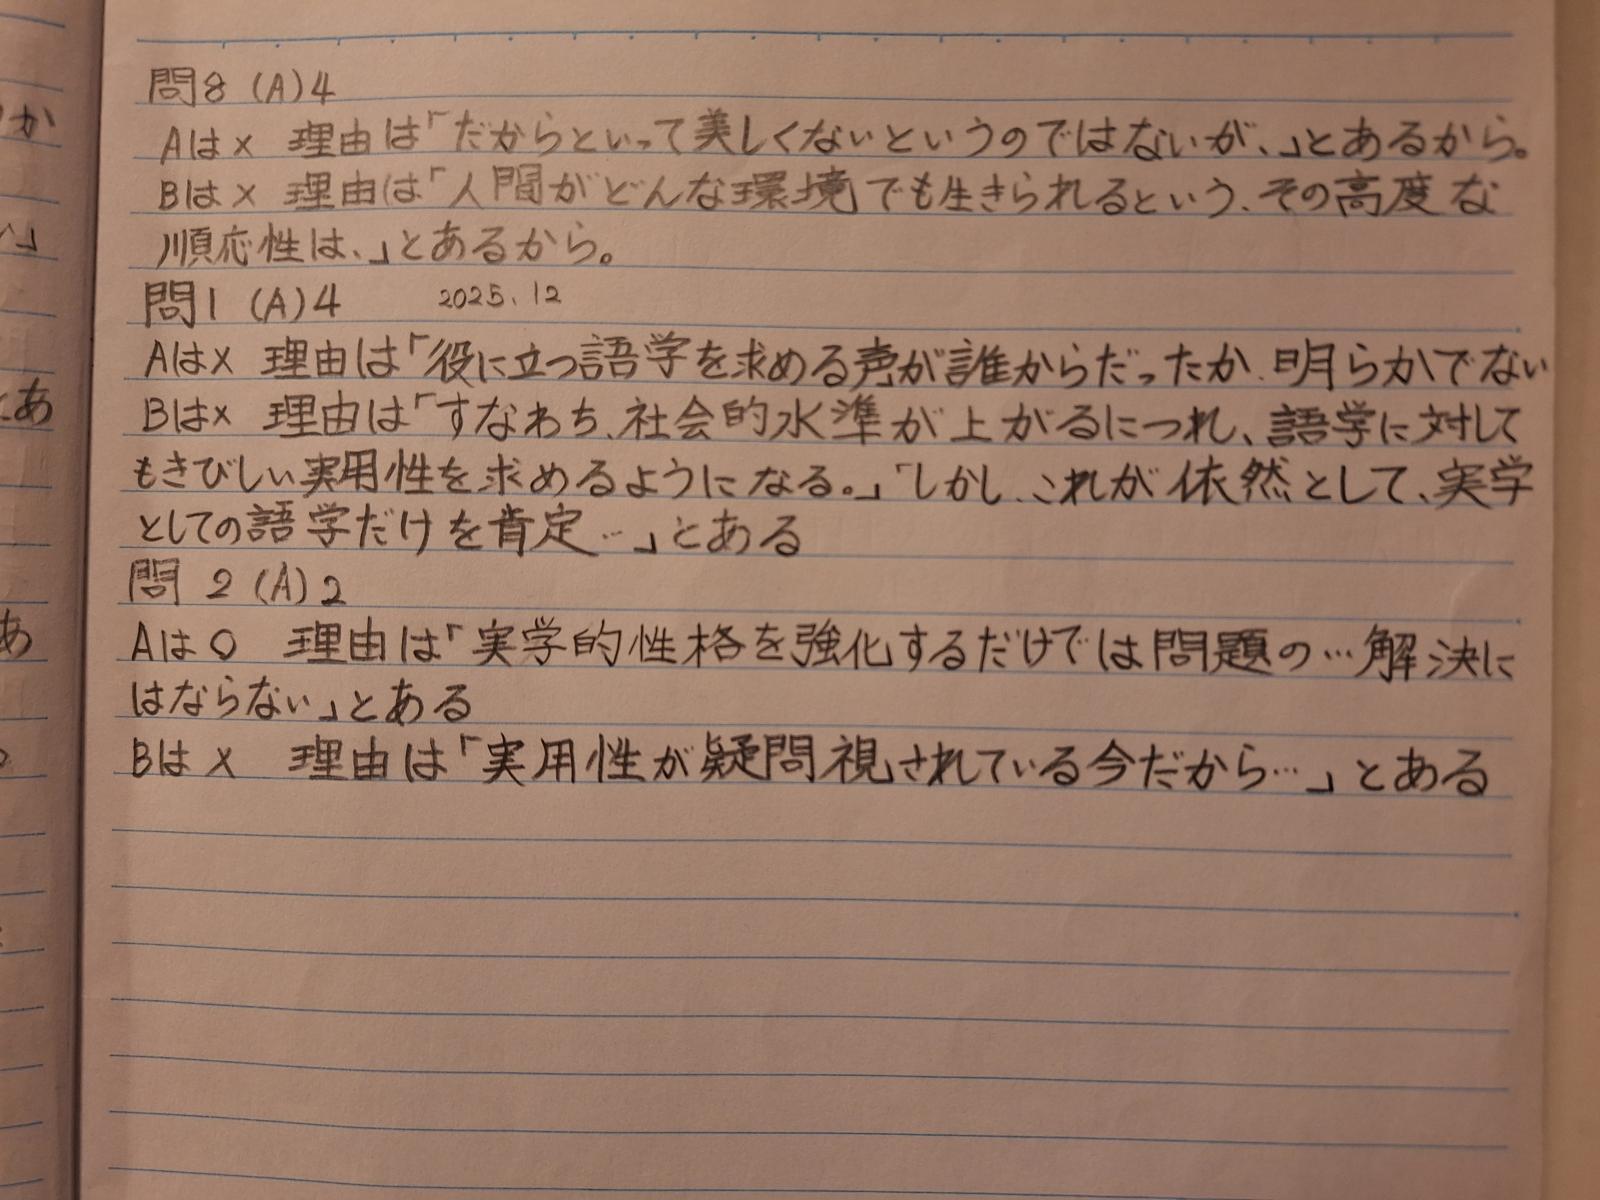 問8 (A)4
Aは× 理由は「だからといって美しくないというのではないが、」とあるから。
Bは× 理由は「人間がどんな環境でも生きられるという、その高度な
順応性は、」とあるから。
問1 (A)4 2025.12
Aは× 理由は「役に立つ語学を求める声が誰からだったか、明らかでない
Bは× 理由は「すなわち、社会的水準が上がるにつれ、語学に対して
もきびしい実用性を求めるようになる。」「しかし、これが依然として、実学
としての語学だけを肯定…」とある
問2 (A)2
Aは○ 理由は「実学的性格を強化するだけでは問題の…解決に
はならない」とある
Bは× 理由は「実用性が疑問視されている今だから…」とある
か
い」
とあ
あ